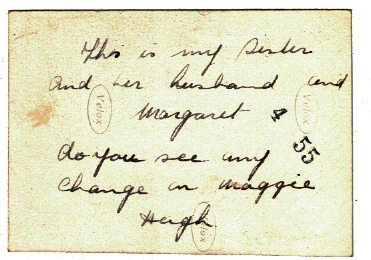 This is my sister
and her husband and
Margaret
do you see any
change in Maggie
Hugh
Velox
Velox
Velox
4 55